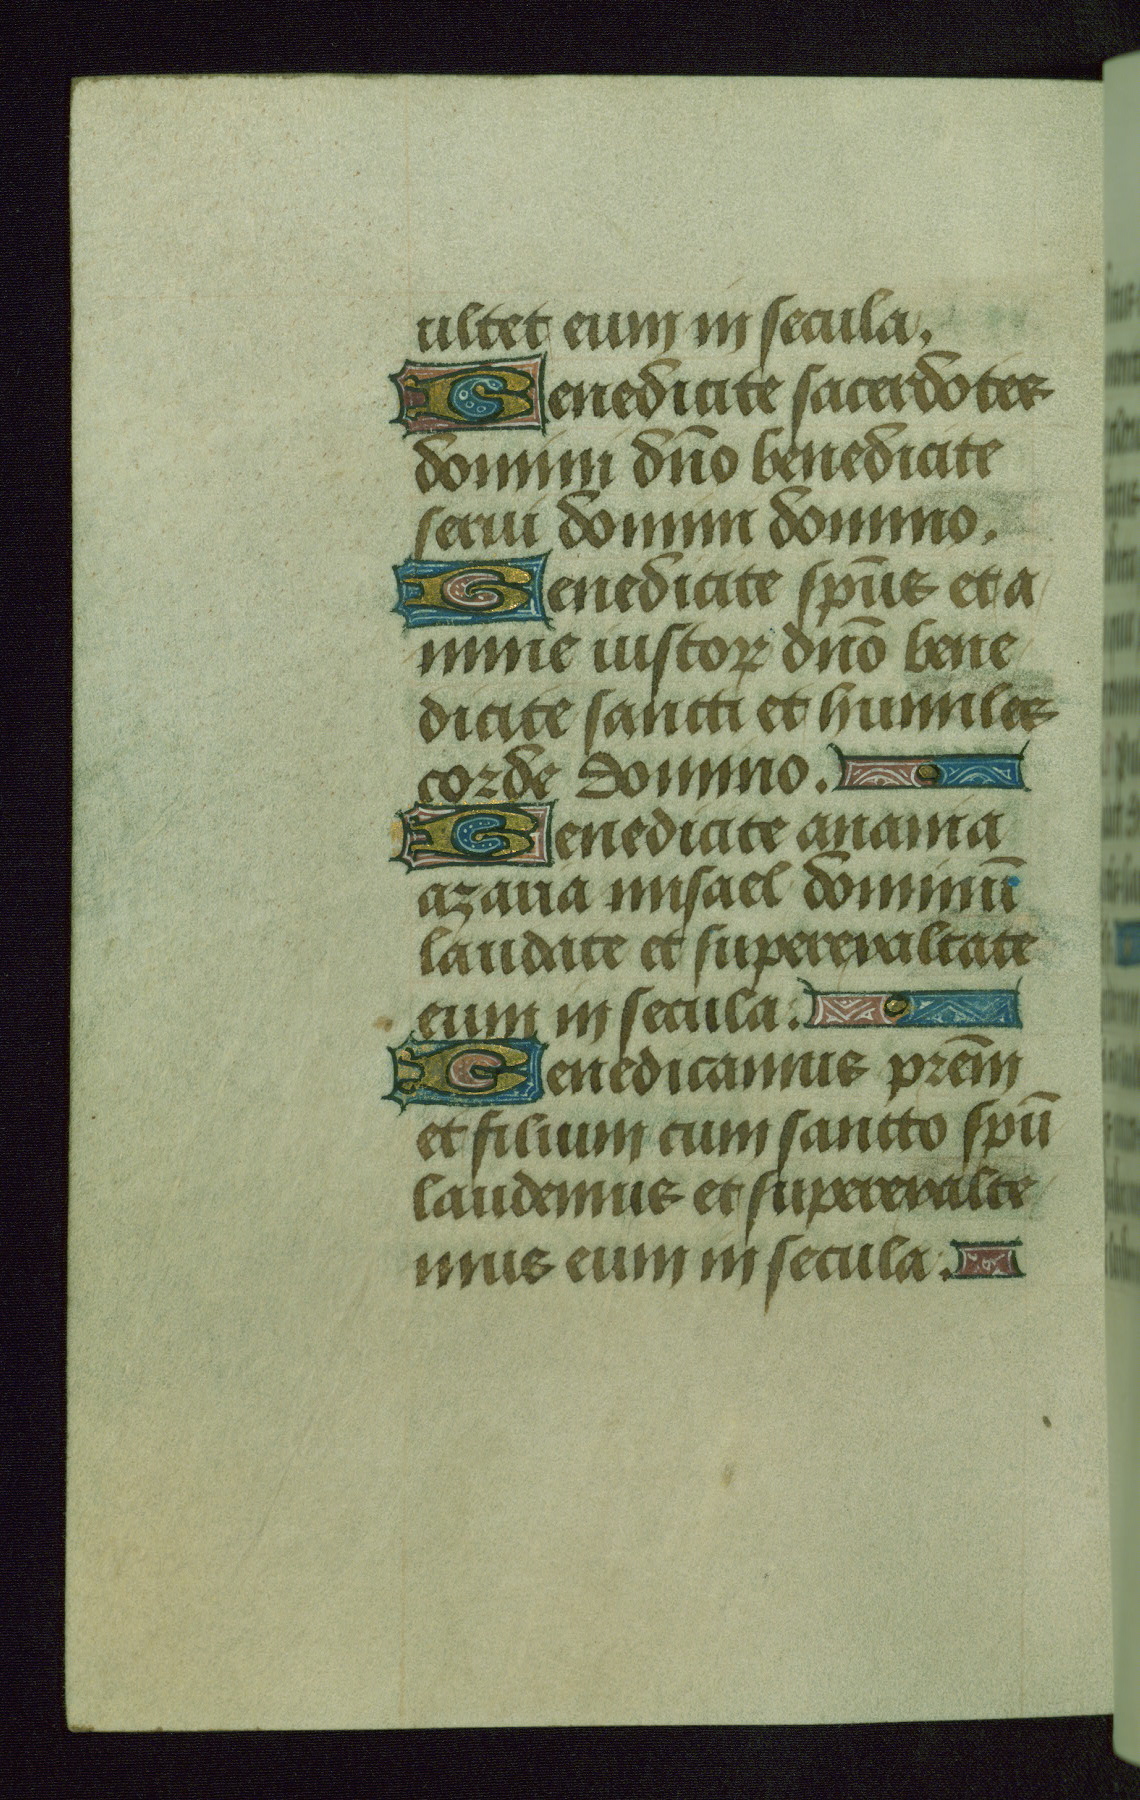 ultet eum in secula.
Benedicite sacerdotes
domini dño benedicite
serui domini domino.
Benedicite spũs et a
nime iustoꝝ dño bene
dicite sancti et humiles
corde domino.
Benedicite anania
azaria misael dominũ
laudate et superexaltate
eum in secula.
Benedicamus prẽm
et filium cum sancto spũ
laudemus et superexalte
mus eum in secula.